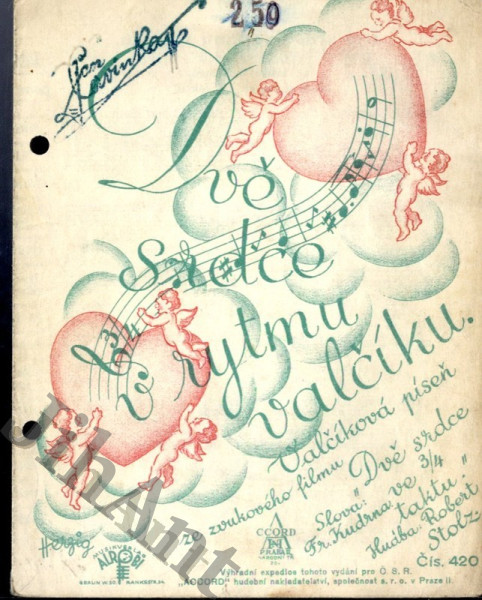 2.50
Jan
Dvě
srdce
v rytmu
valčíku.
Valčíková píseň
ze zvukového filmu
"Dvě srdce
ve 3/4 taktu."
Slova:
Fr. Kudrna
Hudba: Robert
Stolz.
3/4
Herzig
MUSIKVERLAG
ALROBI
ACCORD
PRAHA II.
Čís. 420
Výhradní expedice tohoto vydání pro Č. S. R.
"ACCORD" hudební nakladatelství, společnost s. r. o. v Praze II.
JihAmt